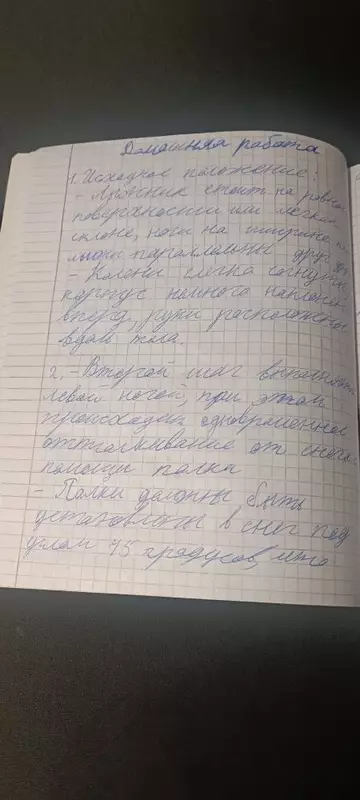 Домашняя работа
1. Исходное положение:
- Лыжник стоит на ровной
поверхности или лёгком
склоне, ноги на ширине
лыжи параллельны друг
- Колени слегка согнуты
корпус немного наклонён
вперёд, руки расположены
вдоль тела.
2. - Второй шаг выполняет
левой ногой, при этом
происходит одновременное
отталкивание от снега
помощи палки
- Палки должны быть
установлены в снег под
углом 45 градусов,